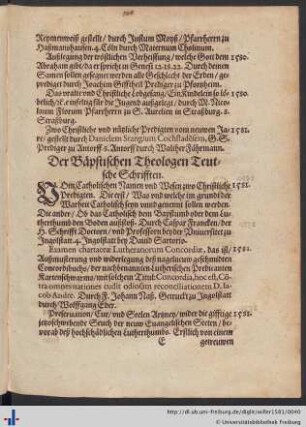 Reymenweiß gestellt / durch Justum Moyß / Pfarrherrn zu
Haßmanshausen. 4. Cöln durch Maternum Cholinum.
Außlegung der tröstlichen Verheissung / welche Gott dem 1580.
Abraham gibt / da er spricht zu Genesi 12. 18. 22. Durch deinen
Samen sollen gesegnet werden alle Geschlecht der Erden / ge-
prediget durch Joachim Prediger zu Pfortzheim.
Das walte und Christliche Lobgesang, Ein Kindelein so lö- 1580.
belich / etc. einfeltig für die Jugend außgelegt / durch M. Nico-
laum Florum Pfarrherrn zu S. Aurelien in Straßburg. 8.
Straßburg.
Zwo Christliche und nützliche Predigten vom newen Ja- 1581.
re / gestellt durch Danielem G. S.
Prediger zu Antorff. 8. Antorff durch
Der Bäpstischen Theologen Teut-
sche Schrifften.
VOm Catholischen Namen und Wesen zwo Christliche 1581.
Predigten. Die erst / Was und welche im grund der
Warheit Catholisch seyn unnd genennt sollen werden.
Die ander / Ob das Catholisch dem Bapstumb oder dem Lu-
therthumb den Boden außstoß. Durch Caspar Francken / der
H. Schrifft Doctorn / und Professorn bey der Universitet zu
Ingolstatt. 4. Ingolstatt bey David Sartorio.
Examen chartaceæ Lutheranorum Concordiæ, das ist / 1581.
Außmusterung und widerlegung deß nagelneuw geschmideten
Concordibuchs / der nachbenannten Lutherischen Predicanten
Kartenschwarms / mit solchem Titul: Concordia, hoc est, Cö-
tra compensationem reconciliationem D. Ia-
cobi Andreæ. Durch F. Johann Naß. Getruckt zu Ingolstatt
durch Wolffgang Eder.
Preservation / Cur / und Seelen Artzney / wider die gifftige 1581.
jetzschwebende Seuch der neuw Evangelischen Secten / be-
vorab deß hochschädlichen Lutherthumbs. Erstlich von einem
E getreuwen
http://dl.ub.uni-freiburg.de/diglit/willer1581/0040
© Universitätsbibliothek Freiburg